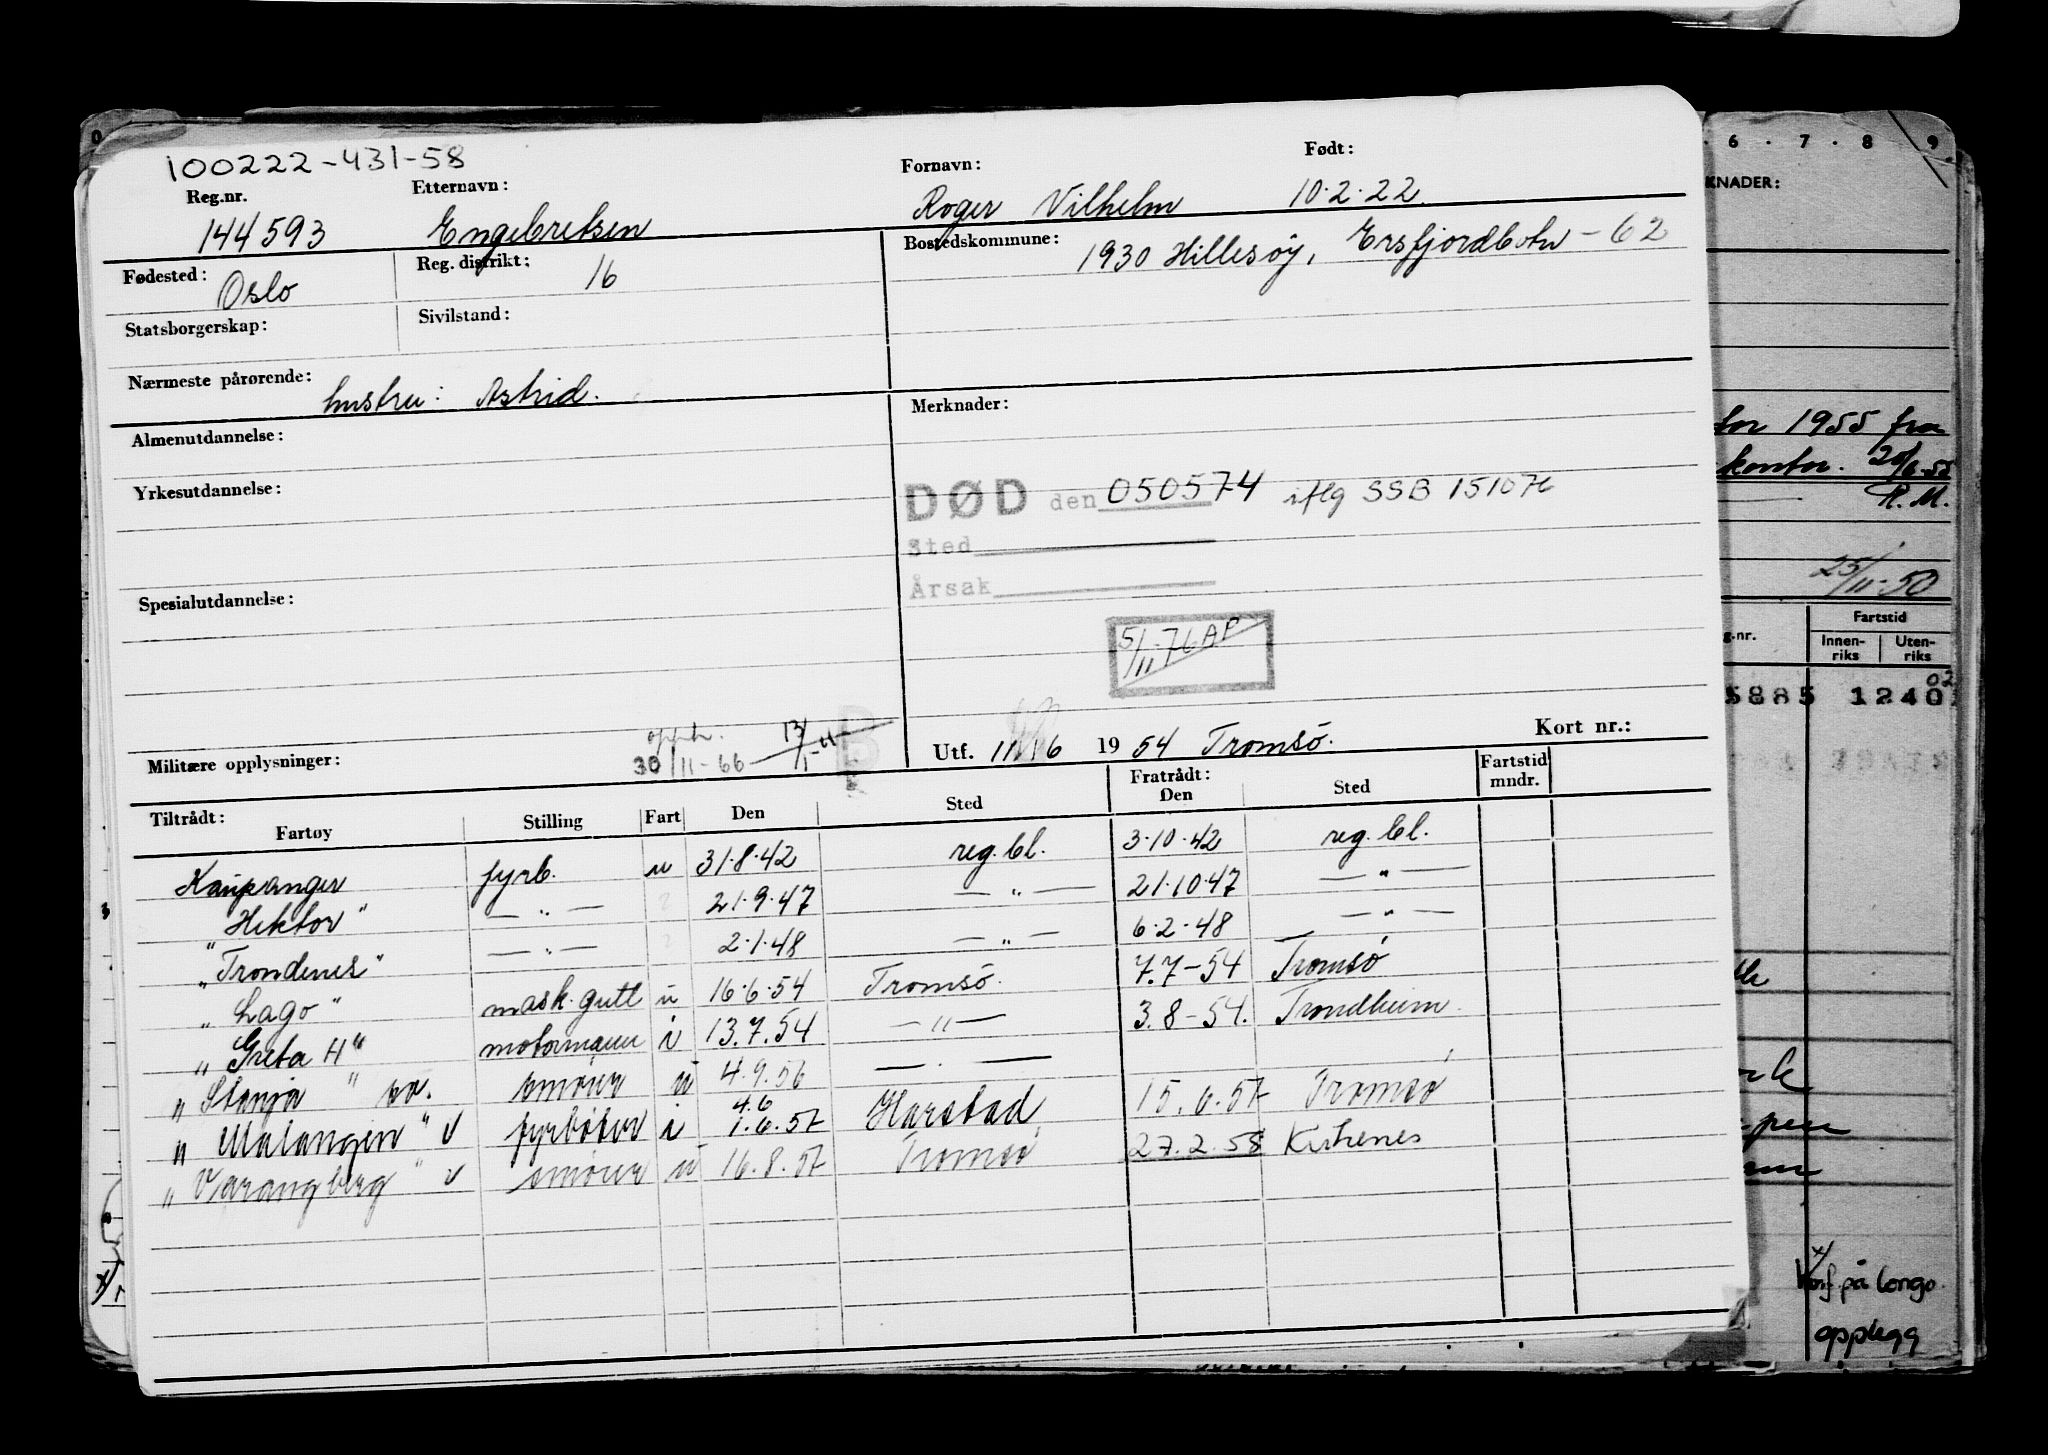 100222-431-58
Reg.nr. Etternavn: Fornavn: Født:
144593 Engebretsen Roger Vilhelm 10.2.22.
Fødested: Reg. distrikt: Bostedskommune:
Oslo 16 1930 Hillesøy, Ersfjordbotn - 62
Statsborgerskap: Sivilstand:
Nærmeste pårørende:
hustru: Astrid.
Almenutdannelse: Merknader:
Yrkesutdannelse:
DØD den 050574 iflg SSB 151076
Sted
Årsak
Spesialutdannelse:
5/11-76 AP
Militære opplysninger: 30/11-66
Utf. 11/6 1954 Tromsö. Kort nr.:
Tiltrådt: Fratrådt: Fartstid
Fartøy Stilling Fart Den Sted Den Sted mndr.
Kaupanger fyrb. u 31.8.42 reg. bl. 3.10.42 reg. bl.
"Hektor" — " — 21.9.47 — " — 21.10.47 — " —
"Trondenes" — " — 2.1.48 — " — 6.2.48 — " —
"Lago" mask.gutt u 16.6.54 Tromsö. 7.7-54 Tromsö
"Greta H" motormann i 13.7.54 — " — 3.8-54. Trondheim
"Stenja" smører u 4.9.56 — " —
4.6
"Malangen" v fyrbøter i 1.6.57 Harstad 15.6.57 Tromsö
"Varangberg" v smører u 16.8.57 Tromsö 27.2.58 Kirkenes
6 . 7 . 8 9
KNADER:
for 1955 fra
kontor. 20/6-55
R.M.
25/11-50
g.nr. Fartstid
Innenriks Utenriks
5885 1240 02
på longo.
opplegg